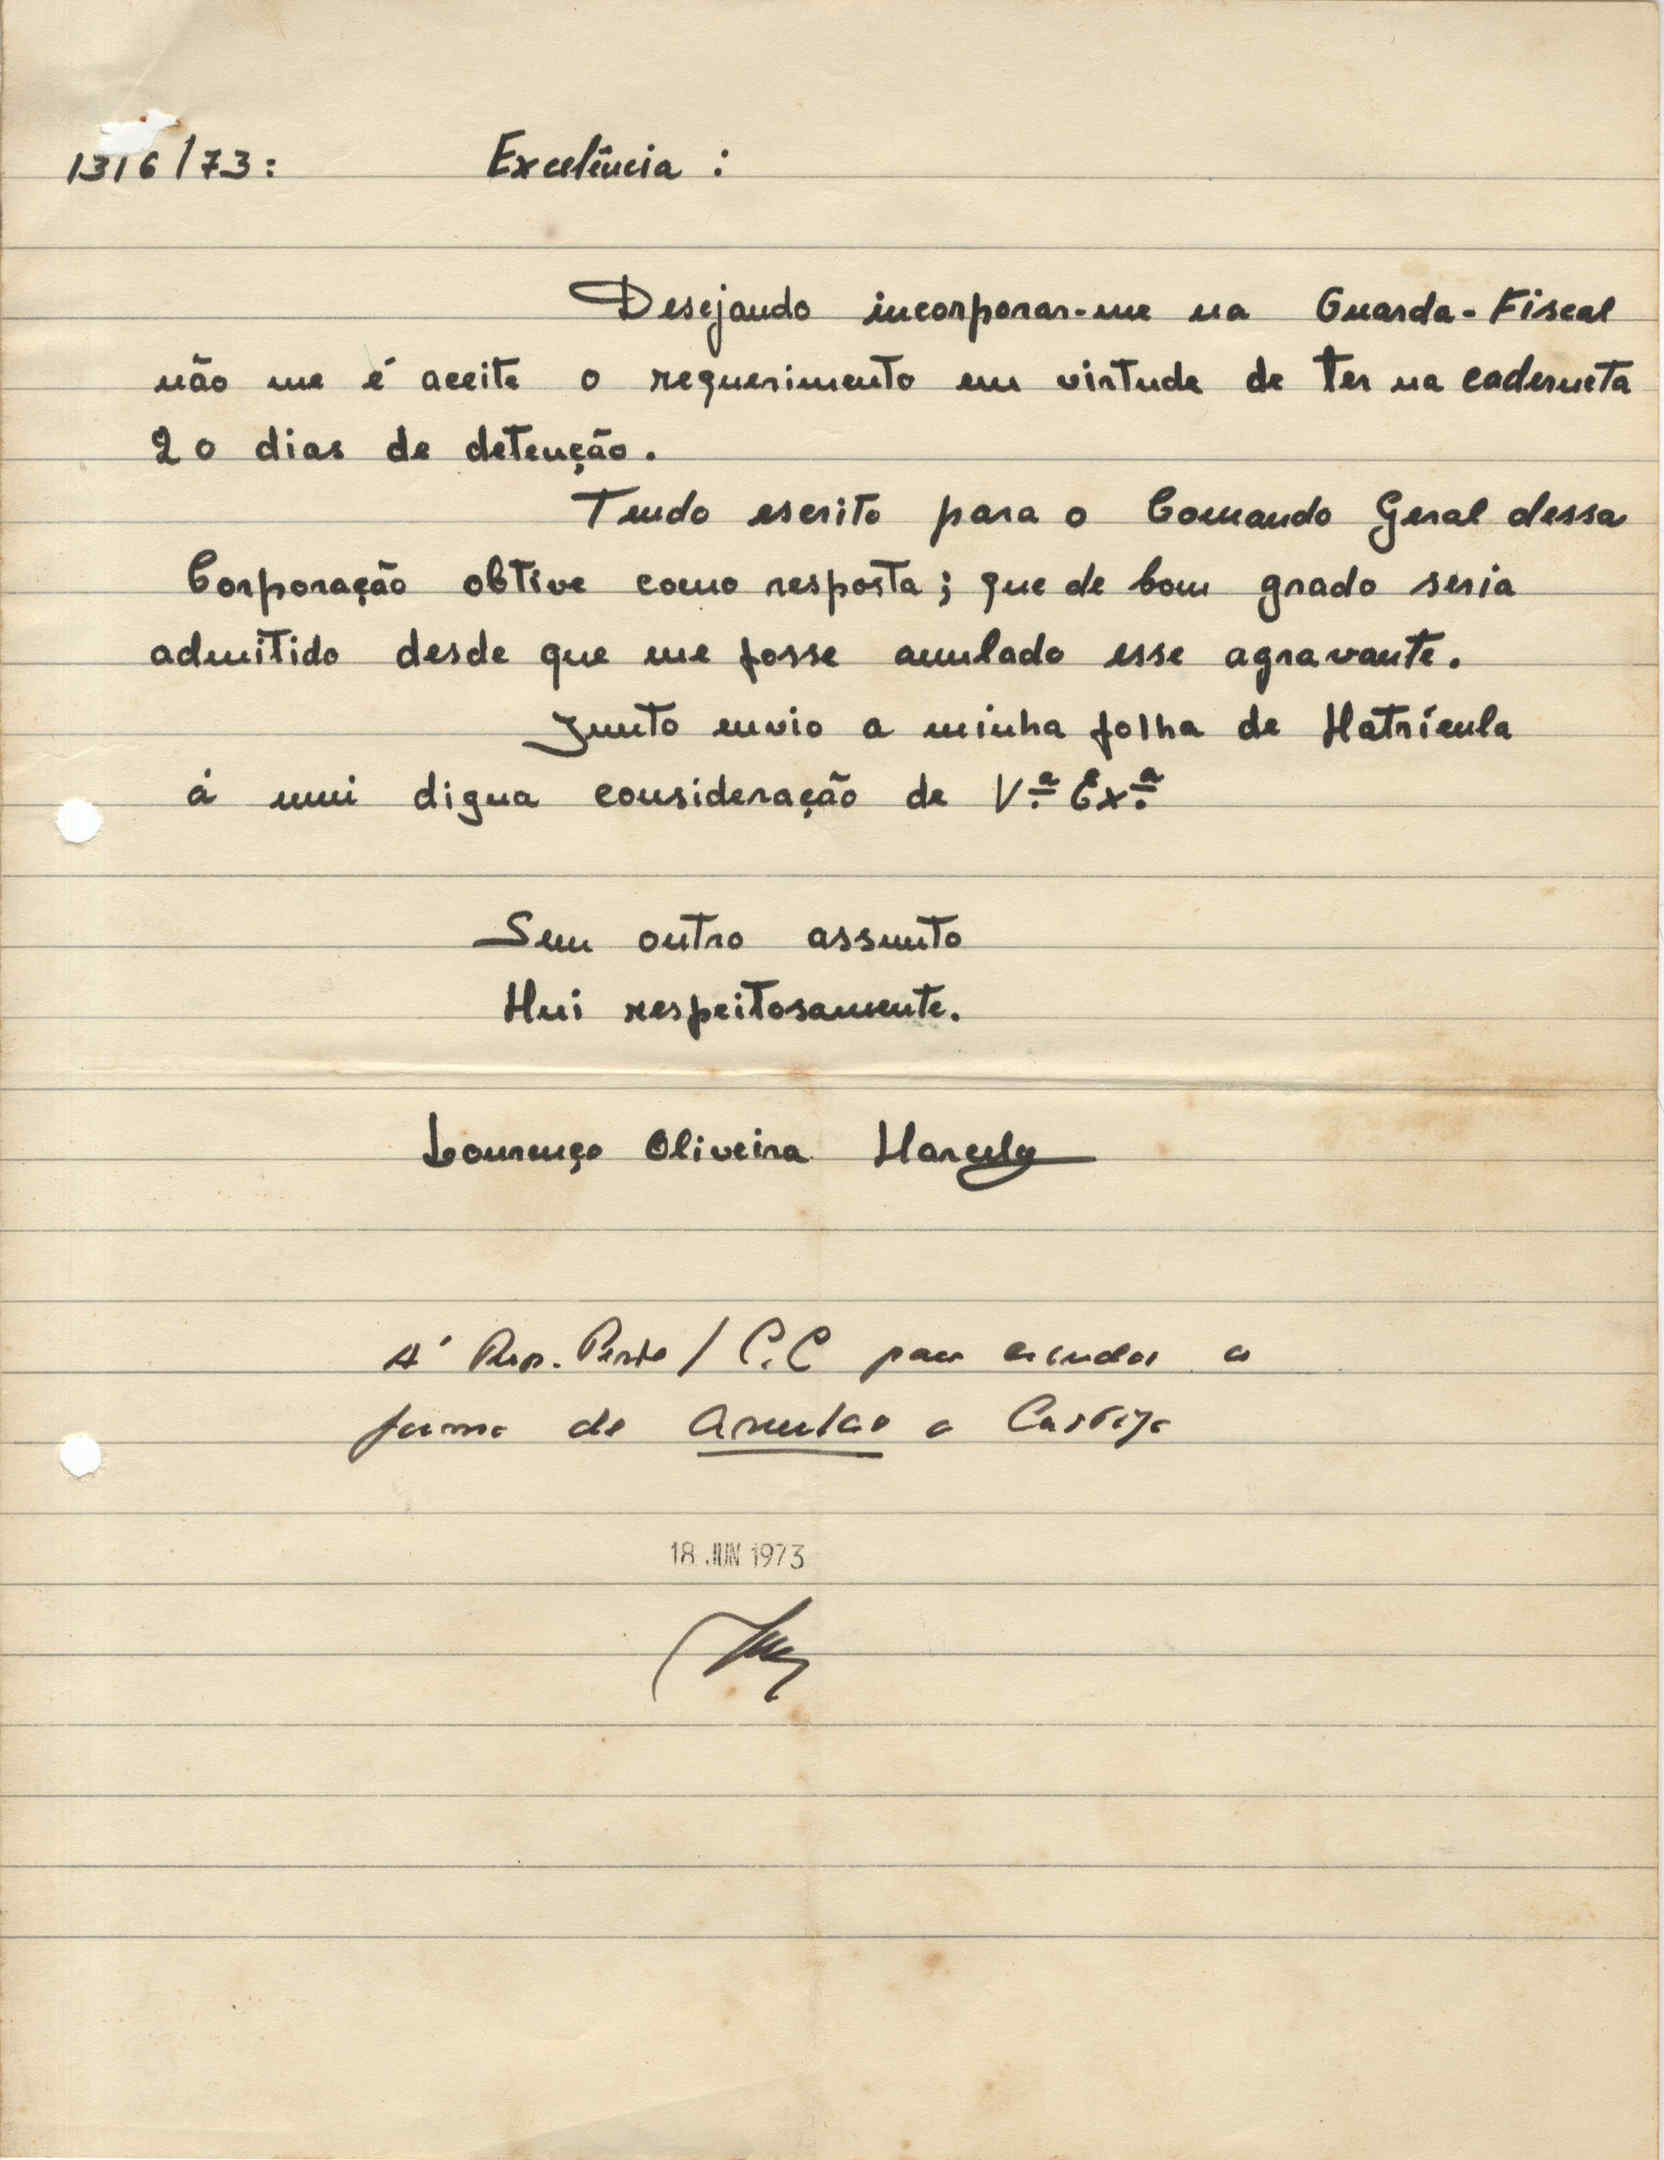 1316/73: Excelência :
Desejando incorporar-me na Guarda-Fiscal
não me é aceite o requerimento em virtude de ter na caderneta
20 dias de detenção.
Tendo escrito para o Comando Geral dessa
Corporação obtive como resposta; que de bom grado seria
admitido desde que me fosse anulado esse agravante.
Junto envio a minha folha de Matrícula
á mui digna consideração de V.ª Ex.ª
Sem outro assunto
Mui respeitosamente.
Lourenço Oliveira
A' / C.C para estudar a
forma de anular o Castigo
18 JUN 1973